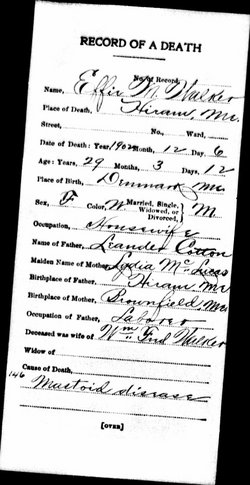 RECORD OF A DEATH
No. of Record,
Name, Effie M. Walker
Place of Death, Hiram, Me.
Street, No., Ward,
Date of Death: Year, 1902 Month, 12 Day, 6
Age: Years, 29 Months, 3 Days, 12
Place of Birth, Denmark Me
Sex, F Color, W Married, Single, Widowed, or Divorced, } M.
Occupation, Housewife
Name of Father, Leander Cotton
Maiden Name of Mother, Lydia Mc Lucas
Birthplace of Father, Hiram Me
Birthplace of Mother, Brownfield Me
Occupation of Father, Laborer
Deceased was wife of Wm Fred Walker
Widow of
Cause of Death,
146 Mastoid disease
[OVER]